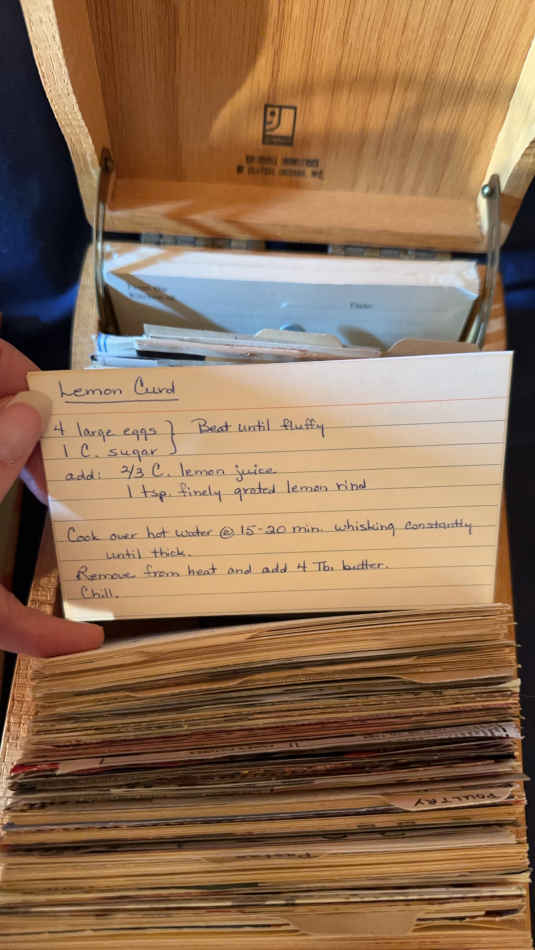 Lemon Curd
4 large eggs } Beat until fluffy
1 C. sugar
add: 2/3 C. lemon juice
1 tsp. finely grated lemon rind
Cook over hot water @ 15-20 min. whisking constantly
until thick.
Remove from heat and add 4 Tb. butter.
Chill.
POULTRY